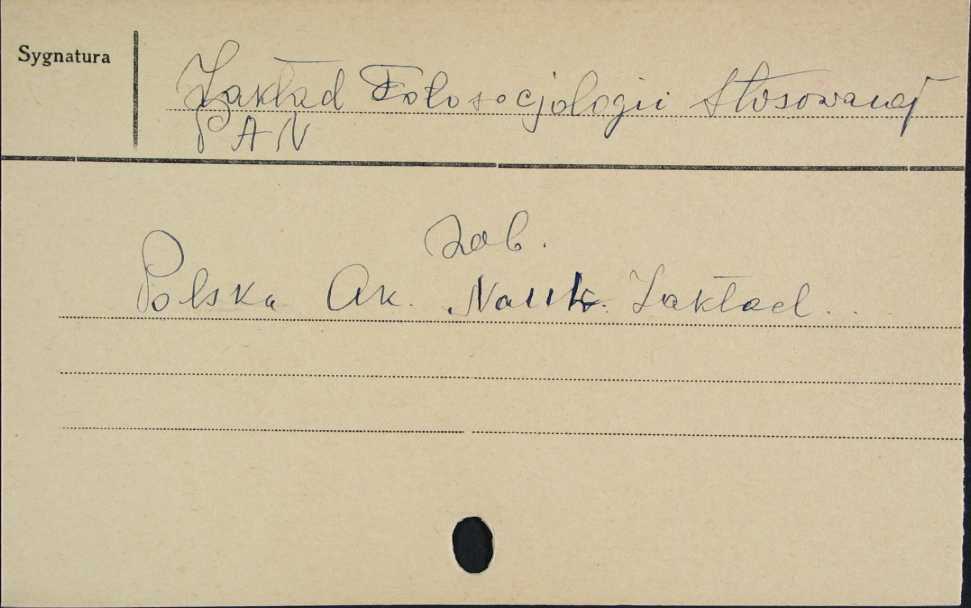 Sygnatura
Zakład Fitosocjologii Stosowanej
PAN
zob.
Polska Ak. Nauk. Zakład..